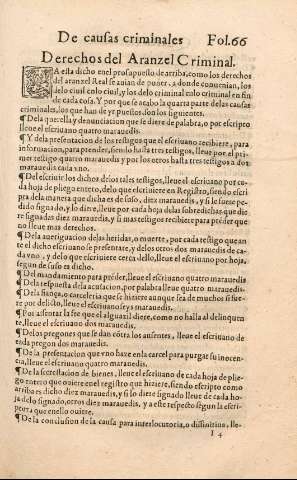 De causas criminales Fol.66
Derechos del Aranzel Criminal.
YA esta dicho enel prosupuesto de arriba, como los derechos
del aranzel Real se auian de poner, a donde conuenian, los
delo ciuil enlo ciuil, y los delo criminal enlo criminal en fin
de cada cosa. Y por que se acabo la quarta parte de las causas
criminales, los que han de yr puestos, son los siguientes.
¶ Dela querella y denunciacion que se diere de palabra, o por escripto
lleue el escriuano quatro marauedis.
¶ Y dela presentacion de los testigos que el escriuano recibiere, para
informacion, para prender, siendo hasta tres testigos, lleue por el pri-
mer testigo quatro marauedis y por los otros hasta tres testigos a dos
marauedis cada vno.
¶ Del escreuir los dichos delos tales testigos, lleue el escriuano por ca-
da hoja de pliego entero, delo que escriuiere en Registro, siendo escri
pta dela manera que dicha es de suso, diez marauedis, y si le fuere pe-
dido signado, y lo diere, lleue por cada hoja delas sobredichas que die
re signadas diez marauedis, y si mas testigos recibiere para prēder que
no lleue mas derechos.
¶ Dela aueriguacion delas heridas, o muerte, por cada testigo que an
te el dicho escriuano se presentare, y delos otros dos marauedis de ca-
da vno, y delo que escriuiere cerca dello, lleue el escriuano por hoja,
segun de suso es dicho.
¶ Del mandamiento para prēder, lleue el escriuano quatro marauedis
¶ Dela respuesta dela acusacion, por palabra lleue quatro marauedis.
¶ Dela fiança, o carceleria que se hiziere aunque sea de muchos si fue-
re por delicto, lleue el escriuano seys marauedis.
¶ Por assentar la fee que el alguazil diere, como no halla al delinquen
te, lleue el escriuano quatro marauedis.
¶ Delos pregones que se dan cōtra los ausentes, lleue el escriuano de
cada pregon dos marauedis.
¶ De la presentacion que vno haze enla carcel para purgar su inocen-
cia, lleue el escriuano quatro marauedis.
¶ De la secrestacion de bienes, lleue el escriuano de cada hoja de plie-
go entero que ouiere enel registro que hiziere, siendo escripto como
arriba es dicho diez marauedis, y si lo diere signado lleue de cada ho-
ja delo signado, otros diez marauedis, y a este respecto segun la escri-
ptura que enello ouiere.
¶ De la conclusion de la causa para interlocutoria, o diffinitiua, lle-
I 4